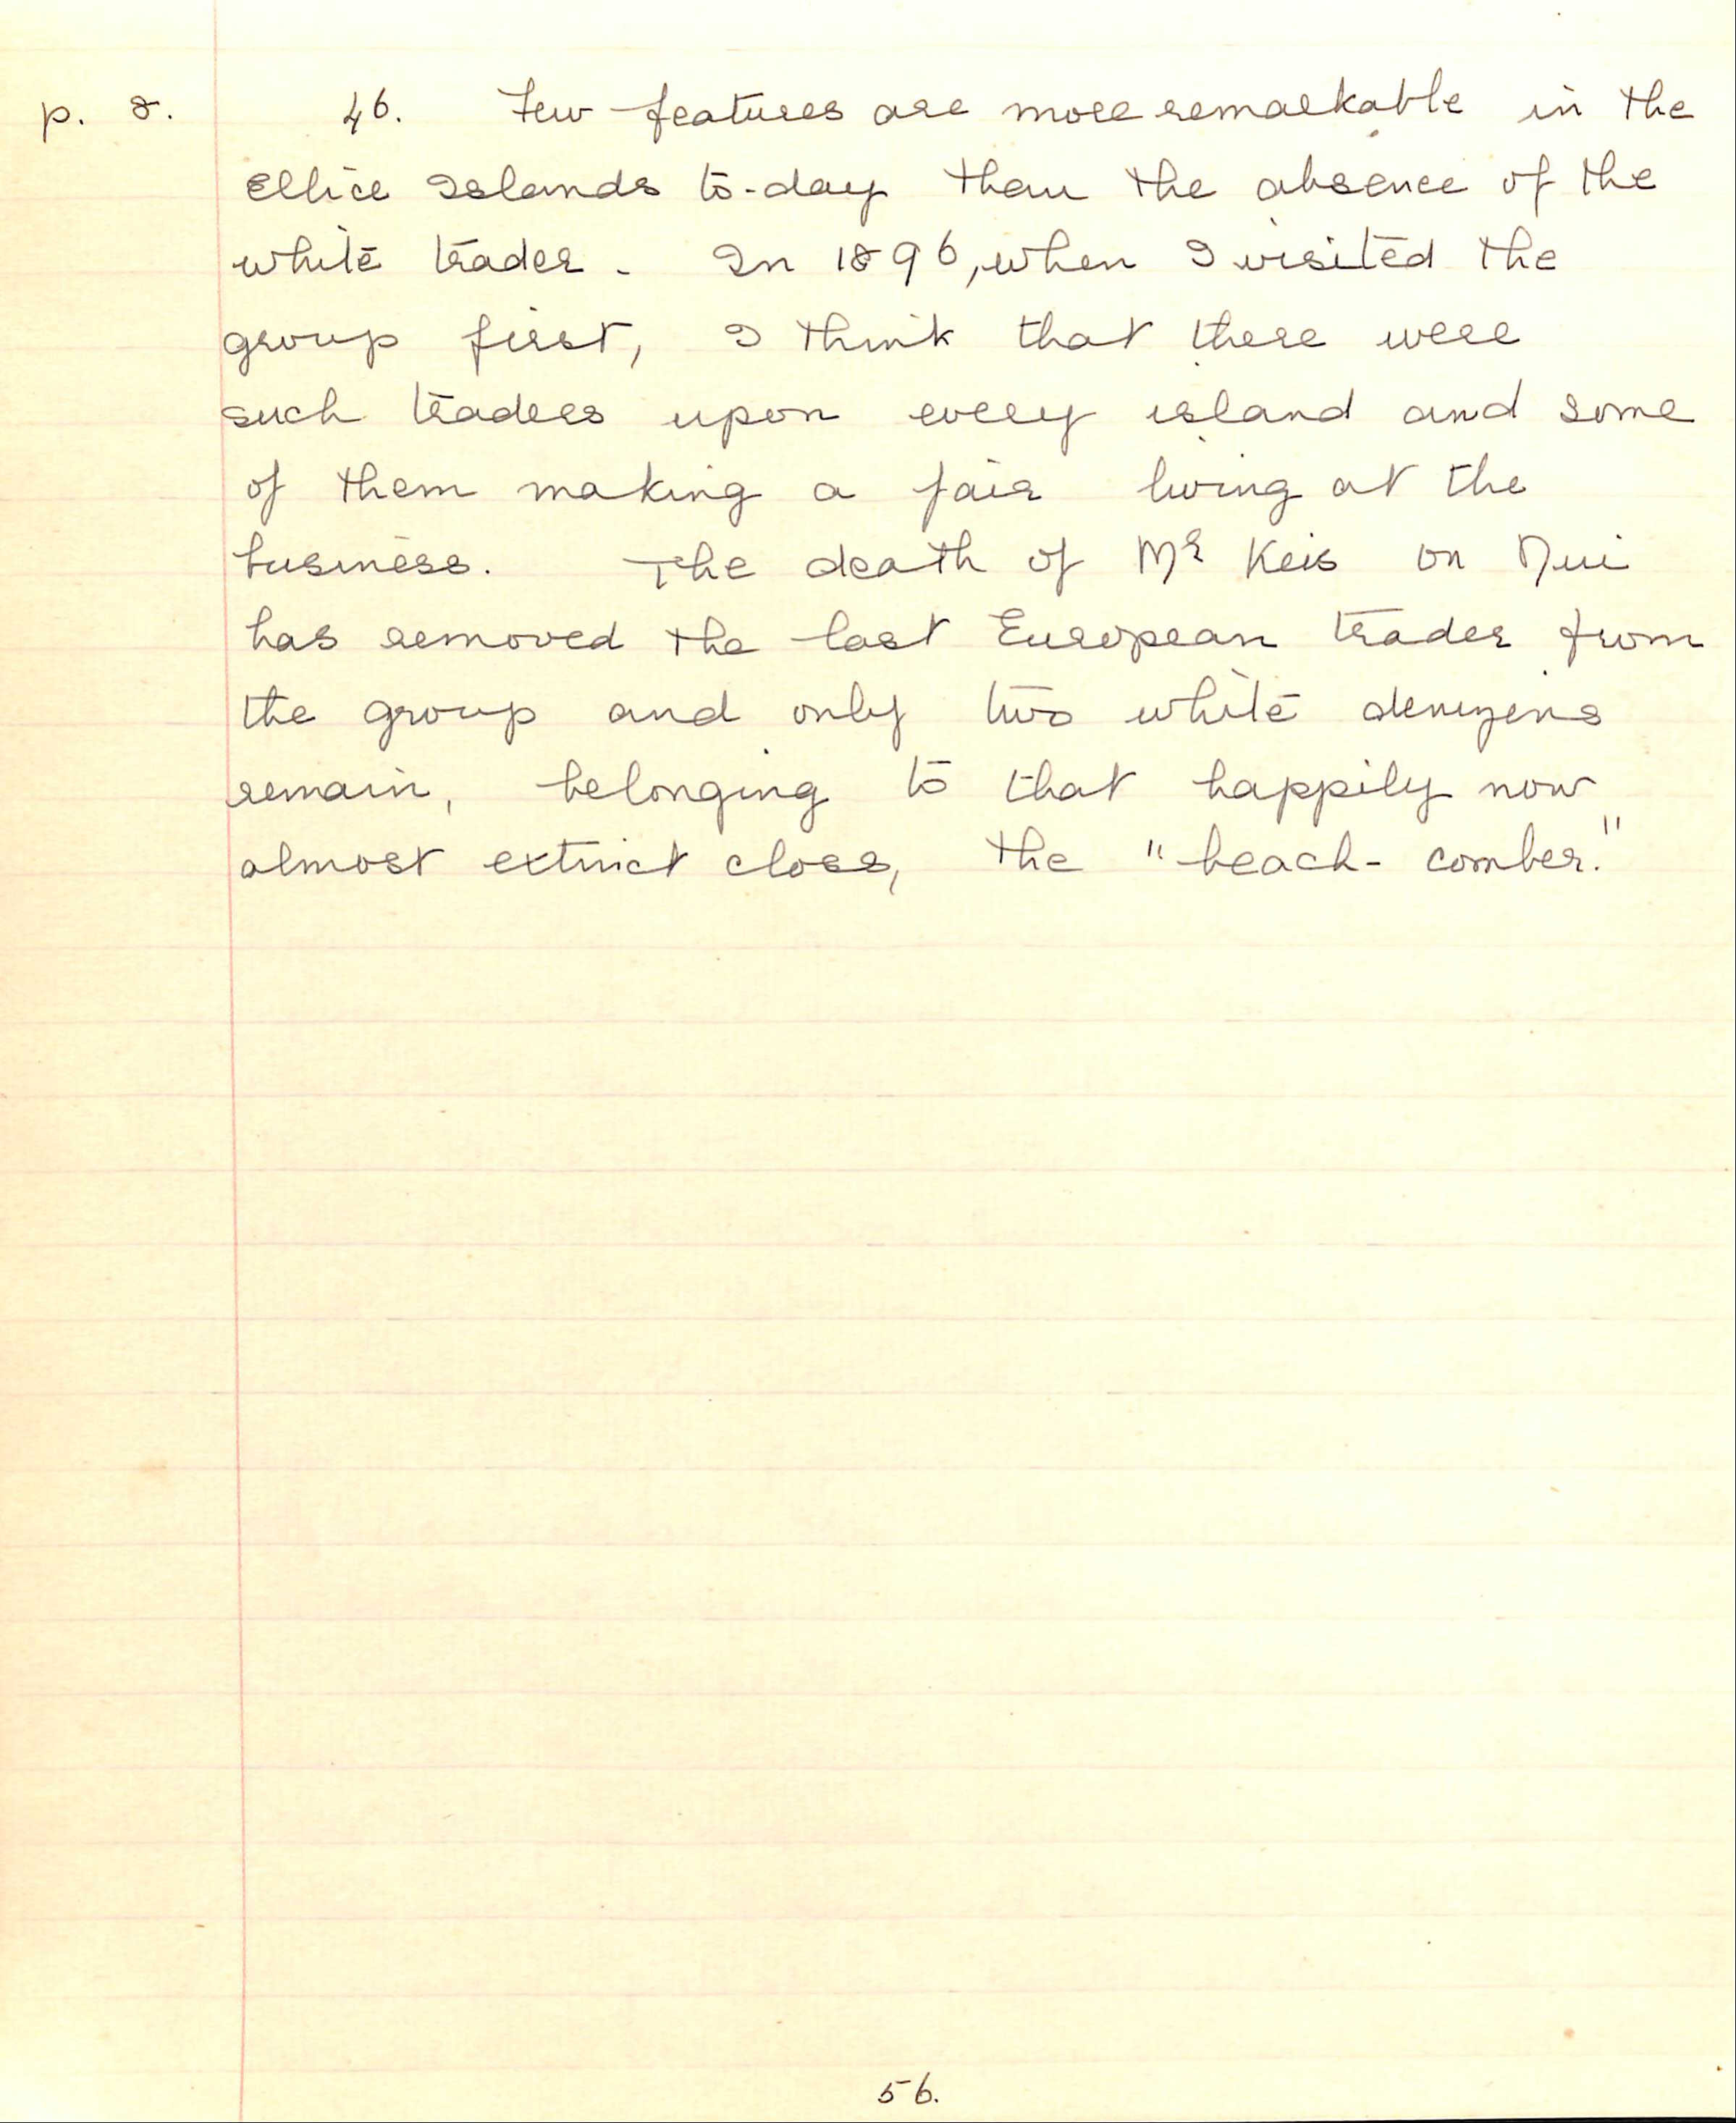 p. 8. 46. Few features are more remarkable in the
Ellice Islands to-day than the absence of the
white trader. In 1896, when I visited the
group first, I think that there were
such traders upon every island and some
of them making a fair living at the
business. The death of Mr Keis on Nui
has removed the last European trader from
the group and only two white denizens
remain, belonging to that happily now
almost extinct class, the "beach-comber."
56.